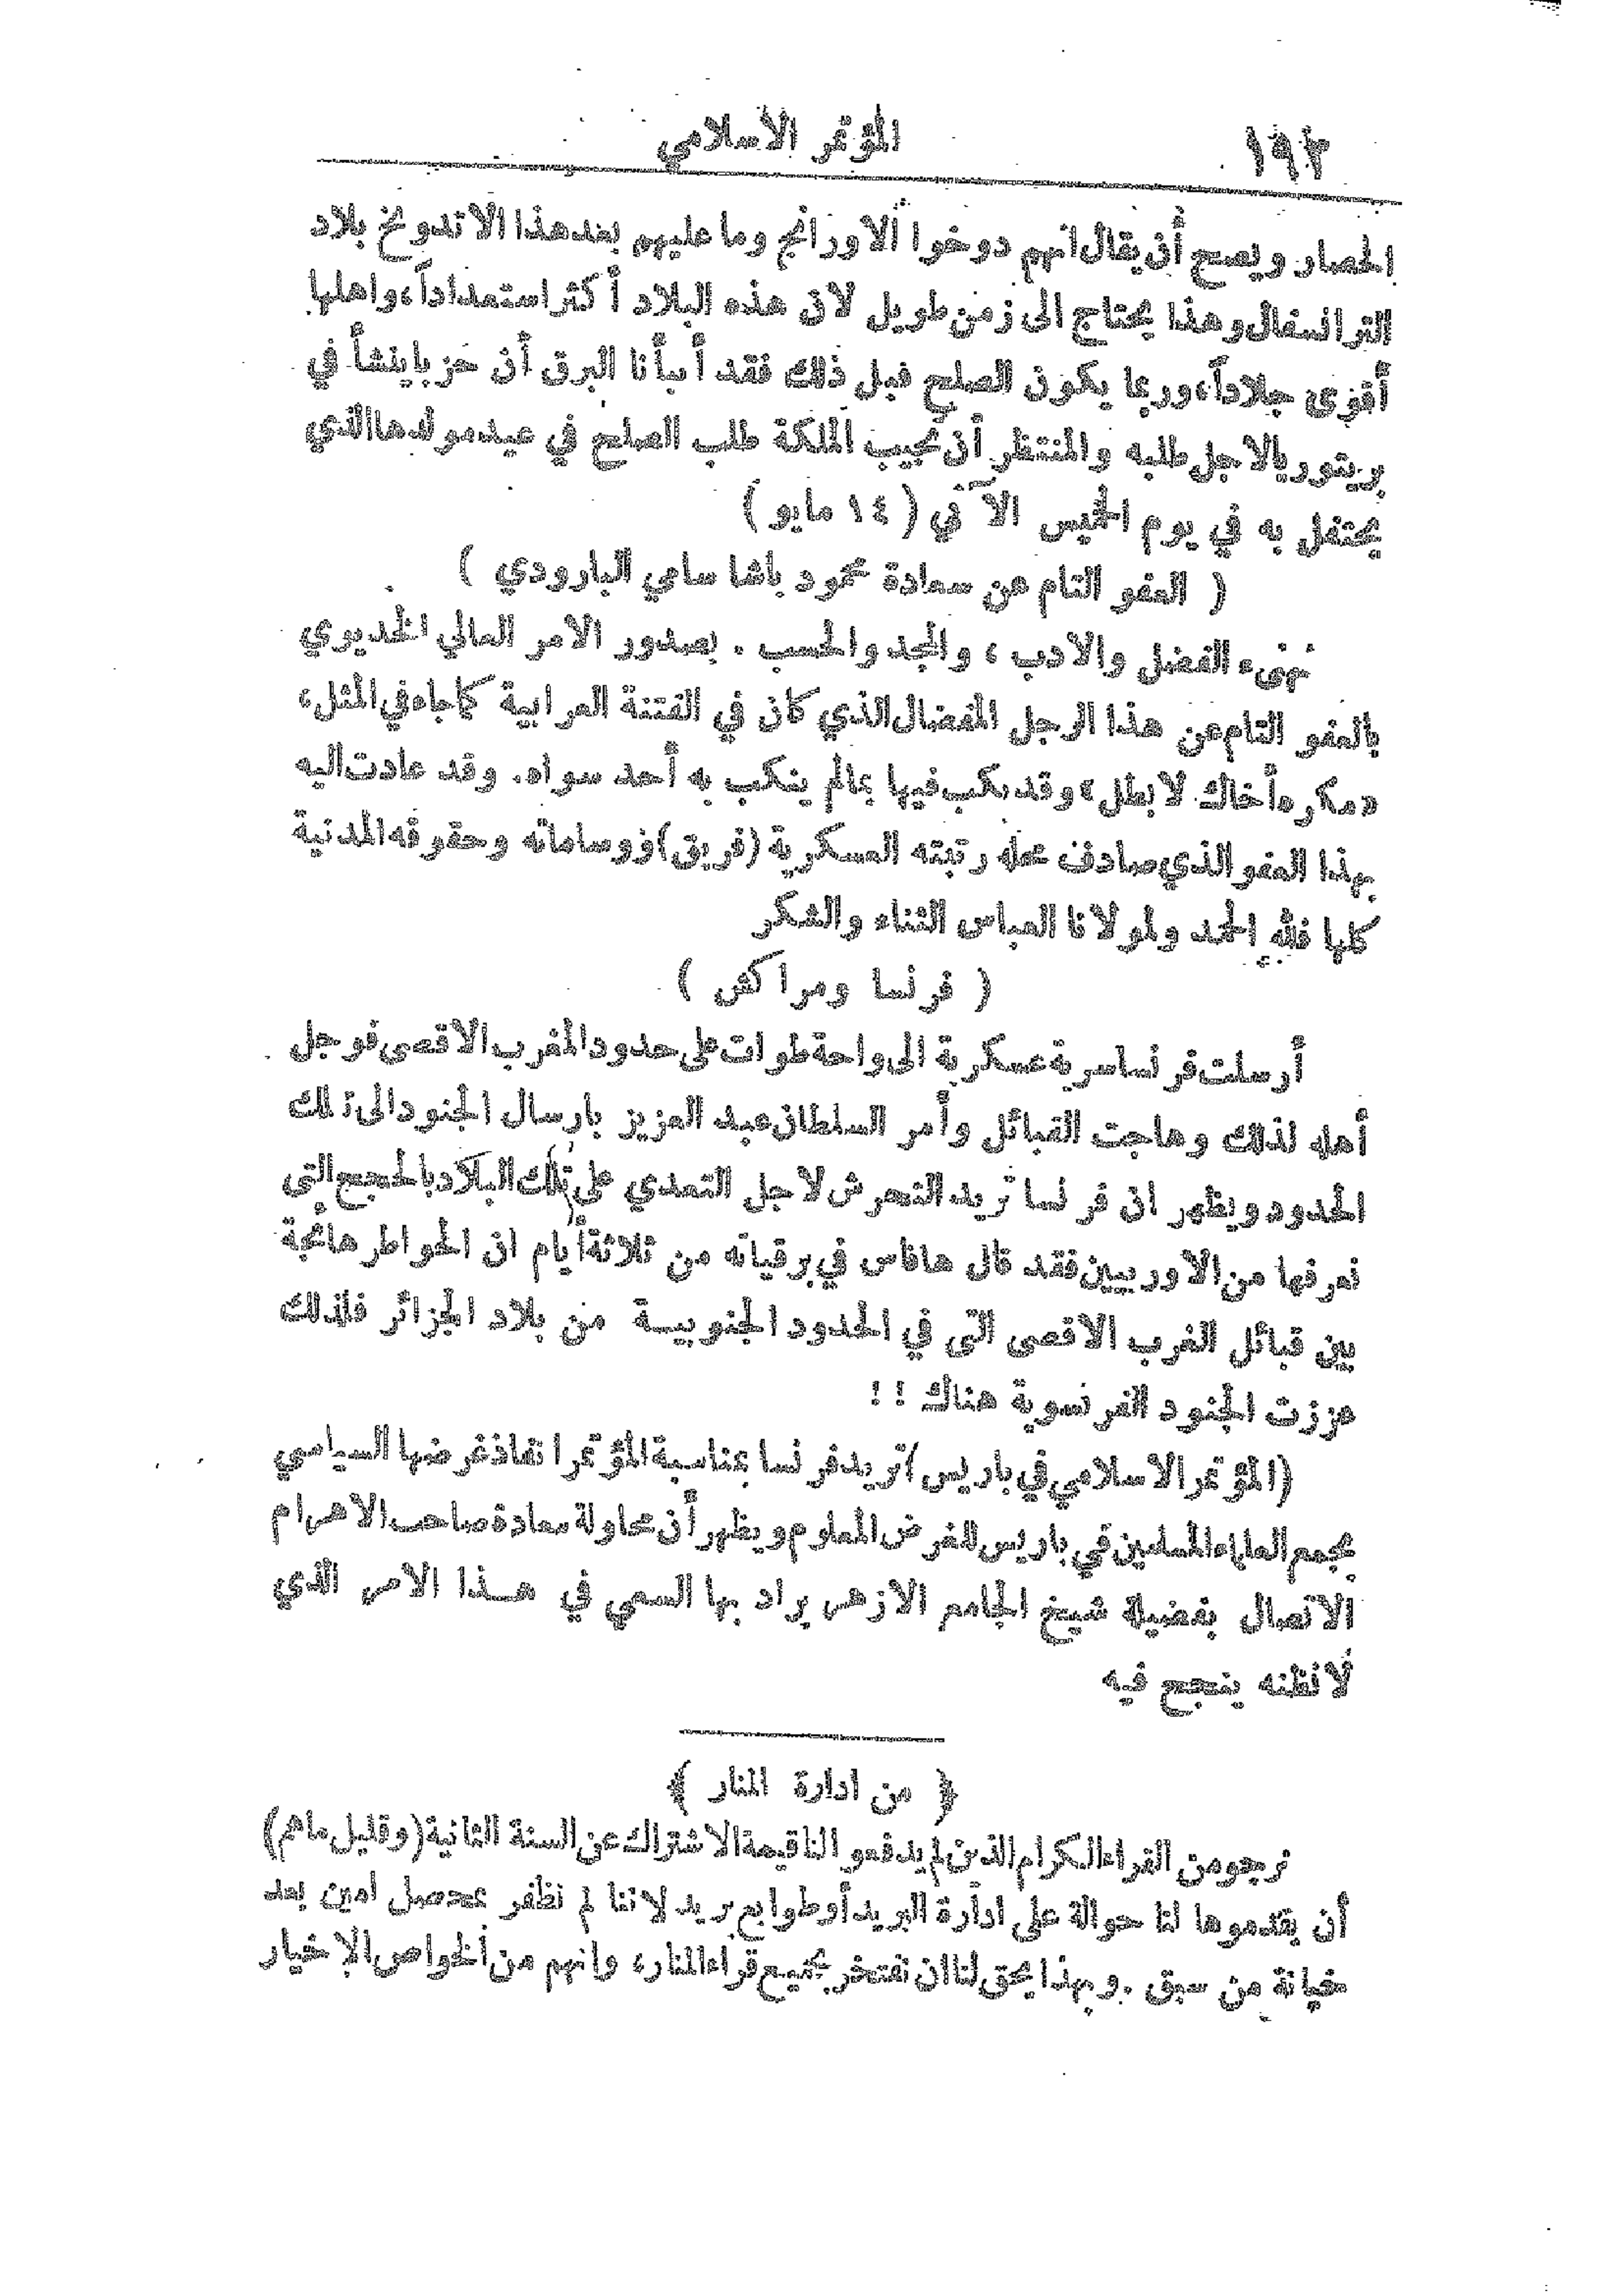 ١٩٢
المؤتمر الاسلامي
الحصار ويصح أن يقال انهم دوخوا الاورانج وما عليهم بعد هذا الا تدويخ بلاد
الترانسفال وهذا يحتاج الى زمن طويل لان هذه البلاد أكثر استعداداً، واهلها
أقوى جلاداً، وربما يكون الصلح قبل ذلك فقد أنبأنا البرق أن حزبا ينشأ في
بريتوريا لاجل طلبه والمنتظر أن تجيب الملكة طلب الصلح في عيد مولدها الذي
يحتفل به في يوم الخميس الآتي (١٤ مايو)
( العفو التام عن سعادة محمود باشا سامي البارودي )
نهنىء الفضل والادب ، والمجد والحسب . بصدور الامر العالي الخديوي
بالعفو التام عن هذا الرجل المفضال الذي كان في الفتنة العرابية كما جاء في المثل،
«مكره أخاك لا بطل» وقد نكب فيها بمالم ينكب به أحد سواه. وقد عادت اليه
بهذا العفو الذي صادف محله رتبته العسكرية (فريق) ووساماته وحقوقه المدنية
كلها فلله الحمد ولمولانا العباس الثناء والشكر
( فرنسا ومراكش )
أرسلت فرنسا سرية عسكرية الى واحة طوات على حدود المغرب الاقصى فوجل
أهله لذلك وهاجت القبائل وأمر السلطان عبد العزيز بارسال الجنود الى تلك
الحدود ويظهر ان فرنسا تريد التحرش لاجل التعدي على تلك البلاد بالحجج التي
نعرفها من الاوربيين فقد قال هافاس في برقياته من ثلاثة أيام ان الخواطر هائجة
بين قبائل الغرب الاقصى التي في الحدود الجنوبيـة من بلاد الجزائر فلذلك
عززت الجنود الفرنسوية هناك ! !
(المؤتمر الاسلامي في باريس) تريد فرنسا بمناسبة المؤتمر انفاذ غرضها السياسي
بجمع العلماء المسلمين في باريس للغرض المعلوم ويظهر أن محاولة سعادة صاحب الاهرام
الاتصال بفضيلة شيخ الجامع الازهر يراد بها السعي في هـذا الامر الذي
لا نظنه ينجح فيه
﴿ من ادارة المنار ﴾
نرجو من القراء الكرام الذين لم يدفعوا لنا قيمة الاشتراك عن السنة الثانية (وقليل ماهم)
أن يقدموها لنا حوالة على ادارة البريد أو طوابع بريد لاننا لم نظفر بمحصل امين بعد
خيانة من سبق . وبهذا يحق لنا ان نفتخر بجميع قراء المنار، وانهم من الخواص الاخيار